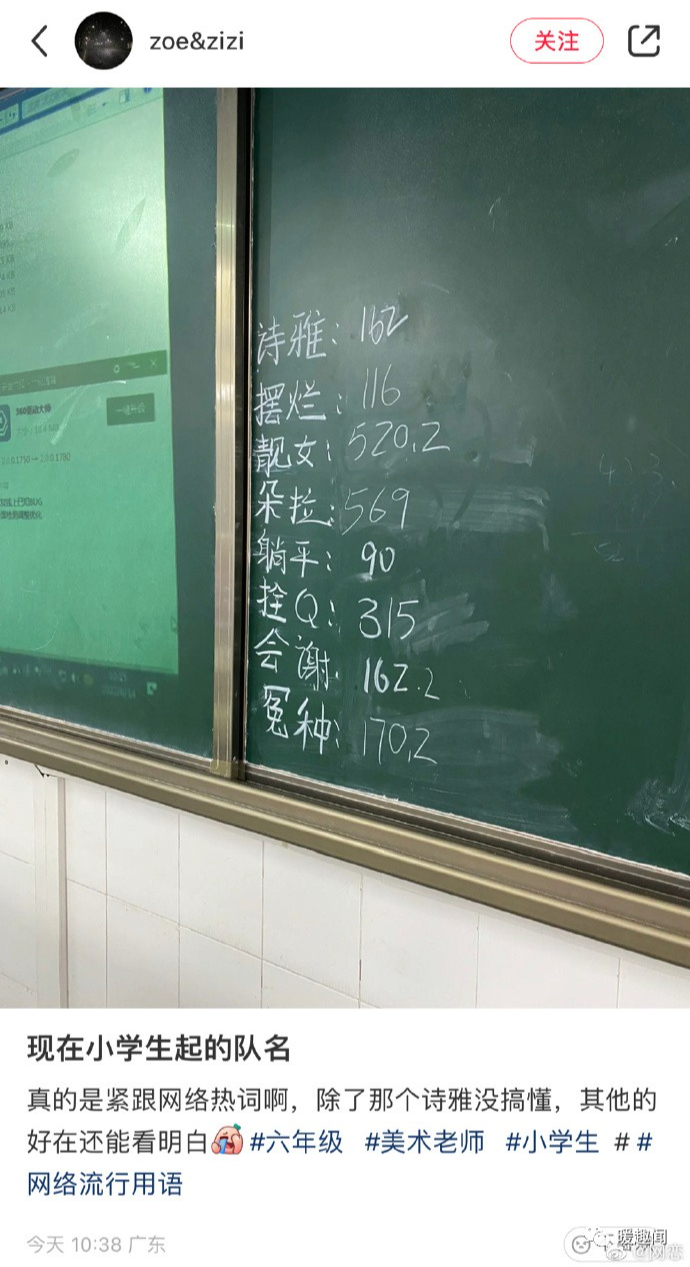 zoe&zizi
关注
诗雅：162
摆烂：116
靓女：520.2
朵拉：569
躺平：90
拴Q：315
会谢 162.2
冤种：170.2
360驱动大师
现在小学生起的队名
真的是紧跟网络热词啊，除了那个诗雅没搞懂，其他的
好在还能看明白 #六年级 #美术老师 #小学生 # #
网络流行用语
今天 10:38 广东
暖趣闻